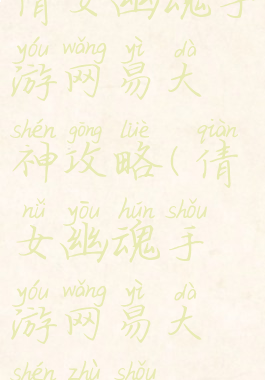 倩女幽魂手
yóu wǎng yì dà
游网易大
shén gōng lüè qiàn
神攻略(倩
nǚ yōu hún shǒu
女幽魂手
yóu wǎng yì dà
游网易大
shén zhù shǒu